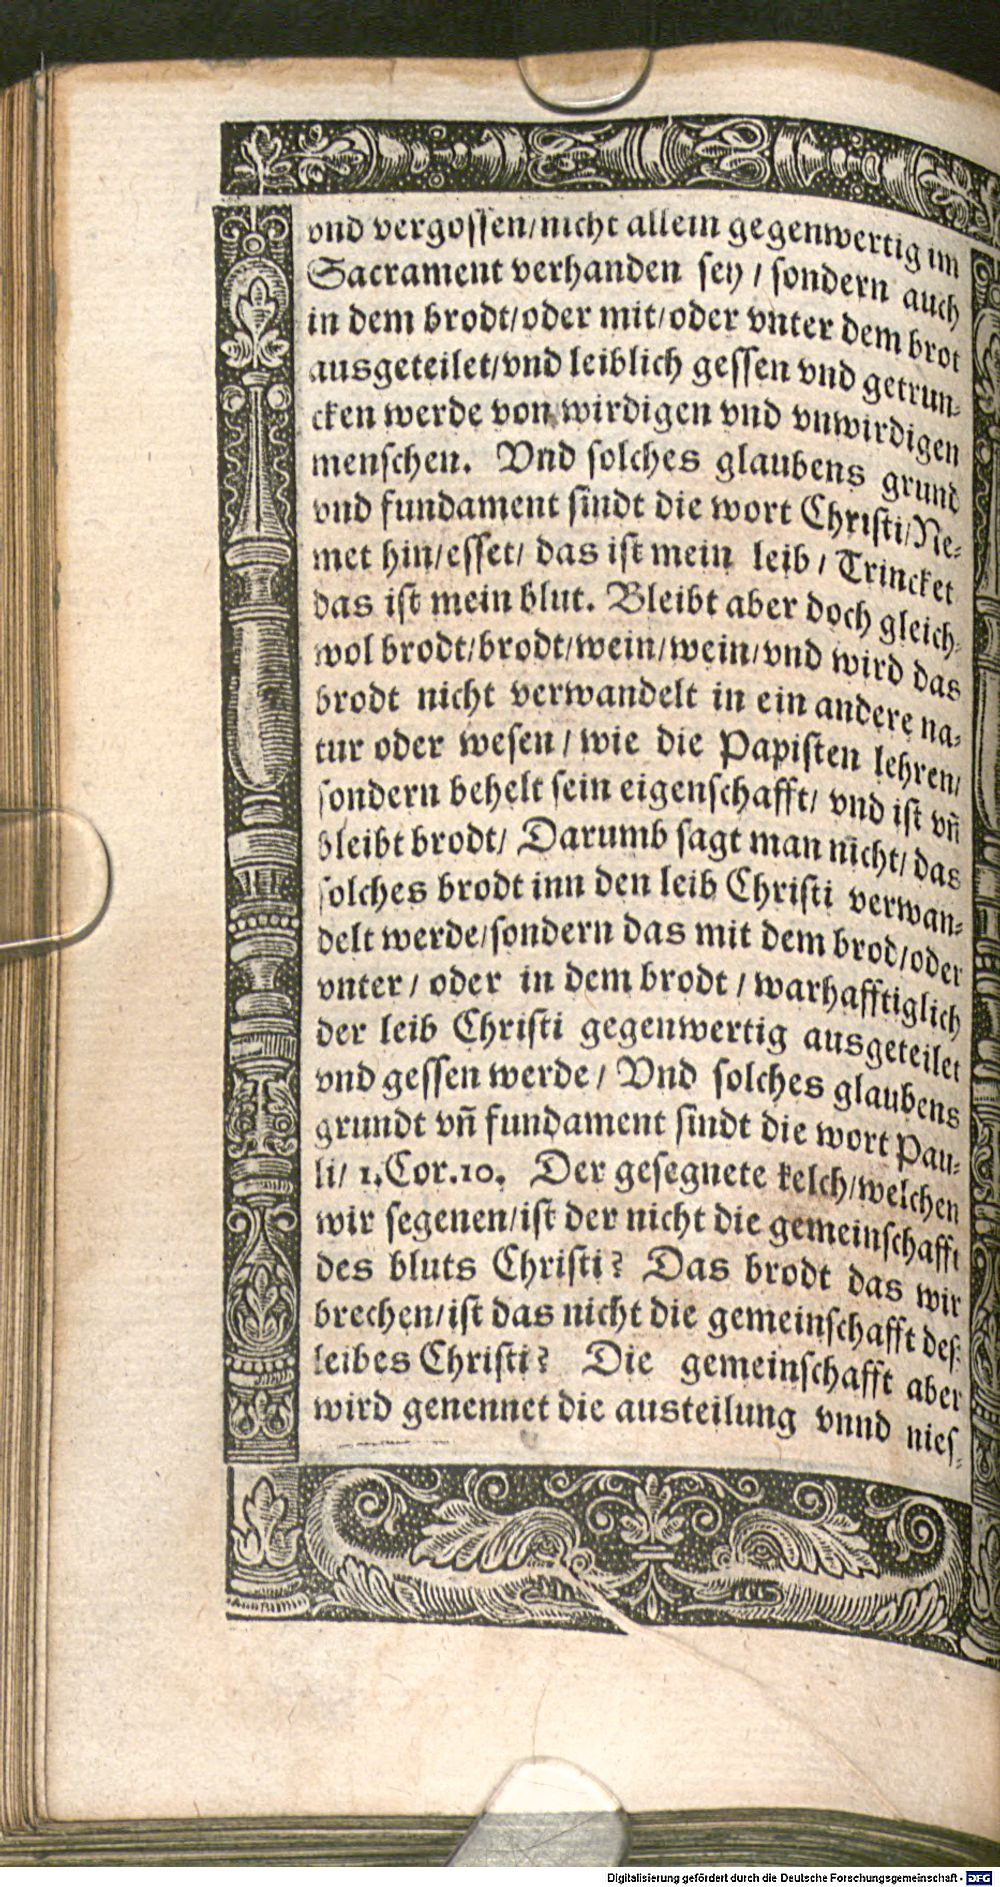 vnd vergossen/nicht allein gegenwertig im
Sacrament verhanden sey / sondern auch
in dem brodt/oder mit/oder vnter dem brot
ausgeteilet/vnd leiblich gessen vnd getrun-
cken werde von wirdigen vnd vnwirdigen
menschen. Vnd solches glaubens grund
vnd fundament sindt die wort Christi/Ne-
met hin/esset/ das ist mein leib / Trincket
das ist mein blut. Bleibt aber doch gleich-
wol brodt/brodt/wein/wein/vnd wird das
brodt nicht verwandelt in ein andere na-
tur oder wesen / wie die Papisten lehren/
sondern behelt sein eigenschafft/ vnd ist vñ
bleibt brodt/ Darumb sagt man nicht/ das
solches brodt inn den leib Christi verwan-
delt werde/sondern das mit dem brod/oder
vnter / oder in dem brodt / warhafftiglich
der leib Christi gegenwertig ausgeteilet
vnd gessen werde / Vnd solches glaubens
grundt vñ fundament sindt die wort Pau-
li/ 1.Cor.10. Der gesegnete kelch/welchen
wir segenen/ist der nicht die gemeinschafft
des bluts Christi? Das brodt das wir
brechen/ist das nicht die gemeinschafft des
leibes Christi? Die gemeinschafft aber
wird genennet die austeilung vnnd nies-
Digitalisierung gefördert durch die Deutsche Forschungsgemeinschaft - DFG